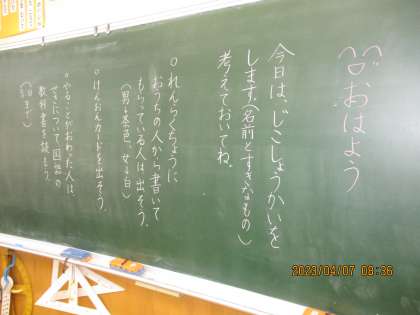 おはよう
今日は、じこしょうかいを
します。(名前とすきなもの)
考えておいてね。
○れんらくちょうに
おうちの人から書いて
もらっている人は出そう。
○けんおんカードを出そう。
○やることがおわった人は、
国語の
教科書を読もう。
2023/04/07 08:36